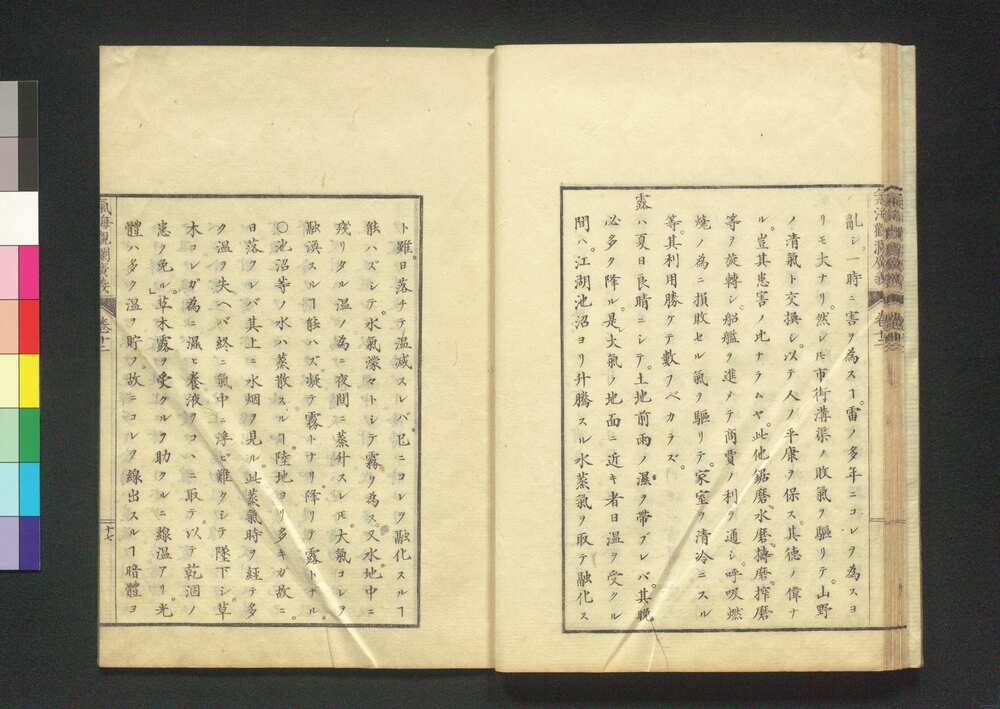 亂シ一時ニ害ヲ為スヿ雷ノ多年ニコレヲ為スヨ
リモ大ナリ。然レ𪜈市街溝渠ノ敗氣ヲ驅リテ山野
ノ清氣ト交換シ以テ人ノ平康ヲ保ス其德ノ偉ナ
ル豈其患害ノ比ナラムヤ。此他鋸磨水磨擣磨搾磨
等ヲ旋轉シ船艦ヲ進メテ商賈ノ利ヲ通シ呼吸燃
燒ノ為ニ損敗セル氣ヲ驅リテ家室ヲ清冷ニスル
等其利用勝ケテ數フベカラズ。
露ハ夏日良晴ニシテ土地前雨ノ濕ヲ帶ブレバ其晩
必多ク降ル。是大氣ノ地面ニ近キ者日温ヲ受クル
間ハ江湖池沼ヨリ升騰スル水蒸氣ヲ取テ融化ス
ト雖日落チテ温減スレバ已ニコレヲ融化スルヿ
能ハズシテ水氣濛々トシテ霧ヲ為ス又水地中ニ
殘リタル温ノ為ニ夜間ニ蒸升スレ𪜈大氣コレヲ
融渙スルヿ能ハズ凝テ露トナリ降リテ露トナル。
○池沼等ノ水ハ蒸散スルヿ陸地ヨリ多キガ故ニ
日落ツレバ其上ニ水烟ヲ見ル此蒸氣時ヲ經テ多
ク温ヲ失ヘバ終ニ氣中ニ浮ビ難クシテ墜下シ草
木コレガ為ニ濕ヒ養液ヲコヽニ取テ以テ乾涸ノ
患ヲ免ル」草木露ヲ受クルヲ助クルニ線温アリ。光
體ハ多ク温ヲ貯フ故ニコレヲ線出スルヿ暗體ヨ
氣海觀瀾廣義
卷十二
十七